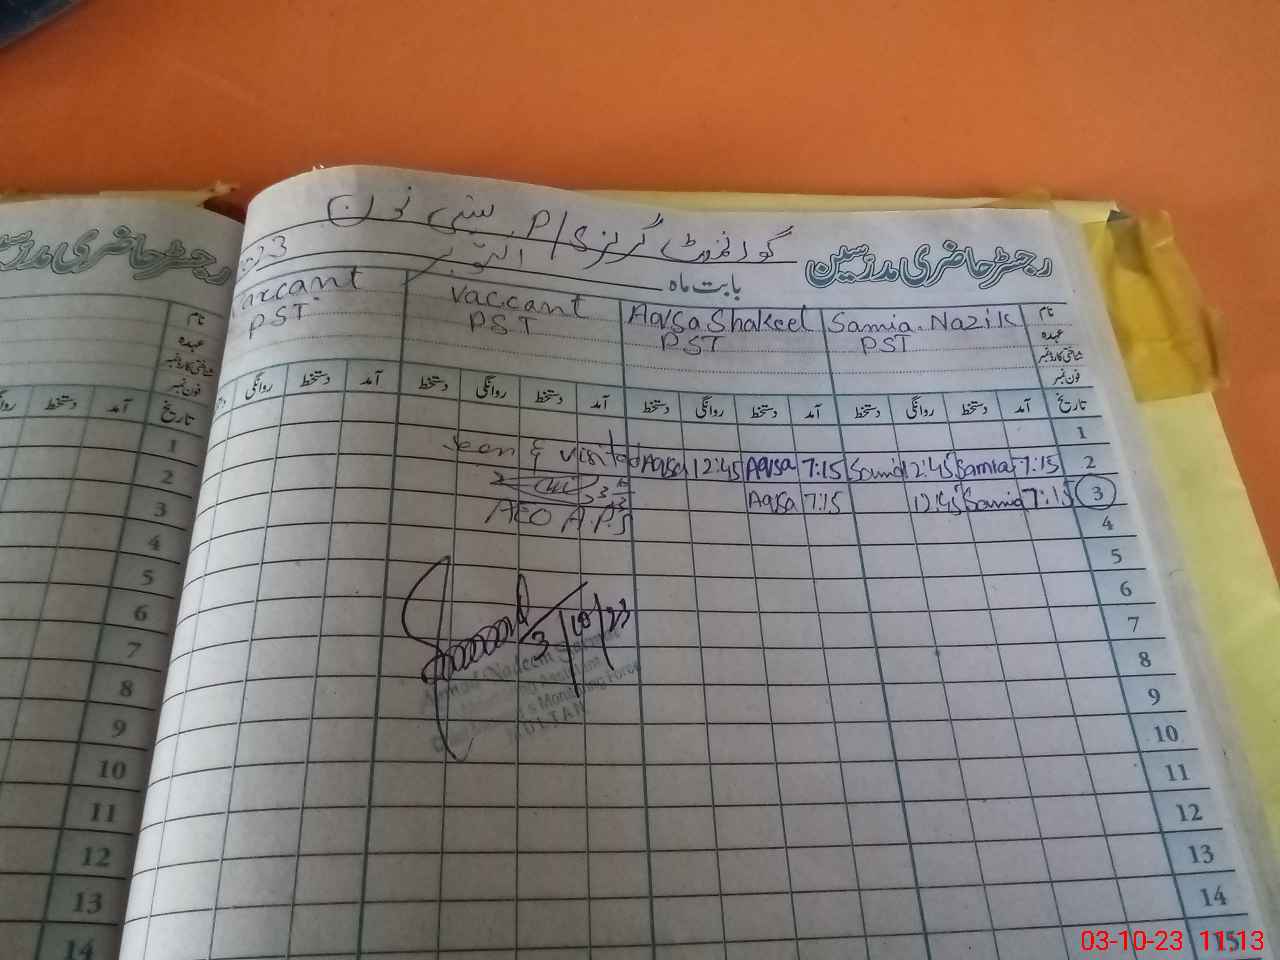 گورنمنٹ گرلز P/S بستی نون
رجسٹر حاضری مدرسین
بابت ماہ اکتوبر 2023
نام Samia Nazik Aqsa Shakeel Vaccant Vaccant
عہدہ PST PST PST PST
شناختی کارڈ نمبر
فون نمبر
تاریخ آمد دستخط روانگی دستخط آمد دستخط روانگی دستخط آمد دستخط روانگی دستخط آمد دستخط روانگی
1
2 7:15 Samia 12:45 Samia 7:15 Aqsa 12:45 Aqsa Seen & visited
3 7:15 Samia 12:45 7:15 Aqsa
AEO A.P.S
4
5
6
7
3/10/23
8
Nadeem
9
Monitoring Force
10
MULTAN
11
12
13
14
15
رجسٹر حاضری مدرسین
نام
عہدہ
شناختی کارڈ نمبر
فون نمبر
تاریخ آمد دستخط
1
2
3
4
5
6
7
8
9
10
11
12
13
14
03-10-23 11:13